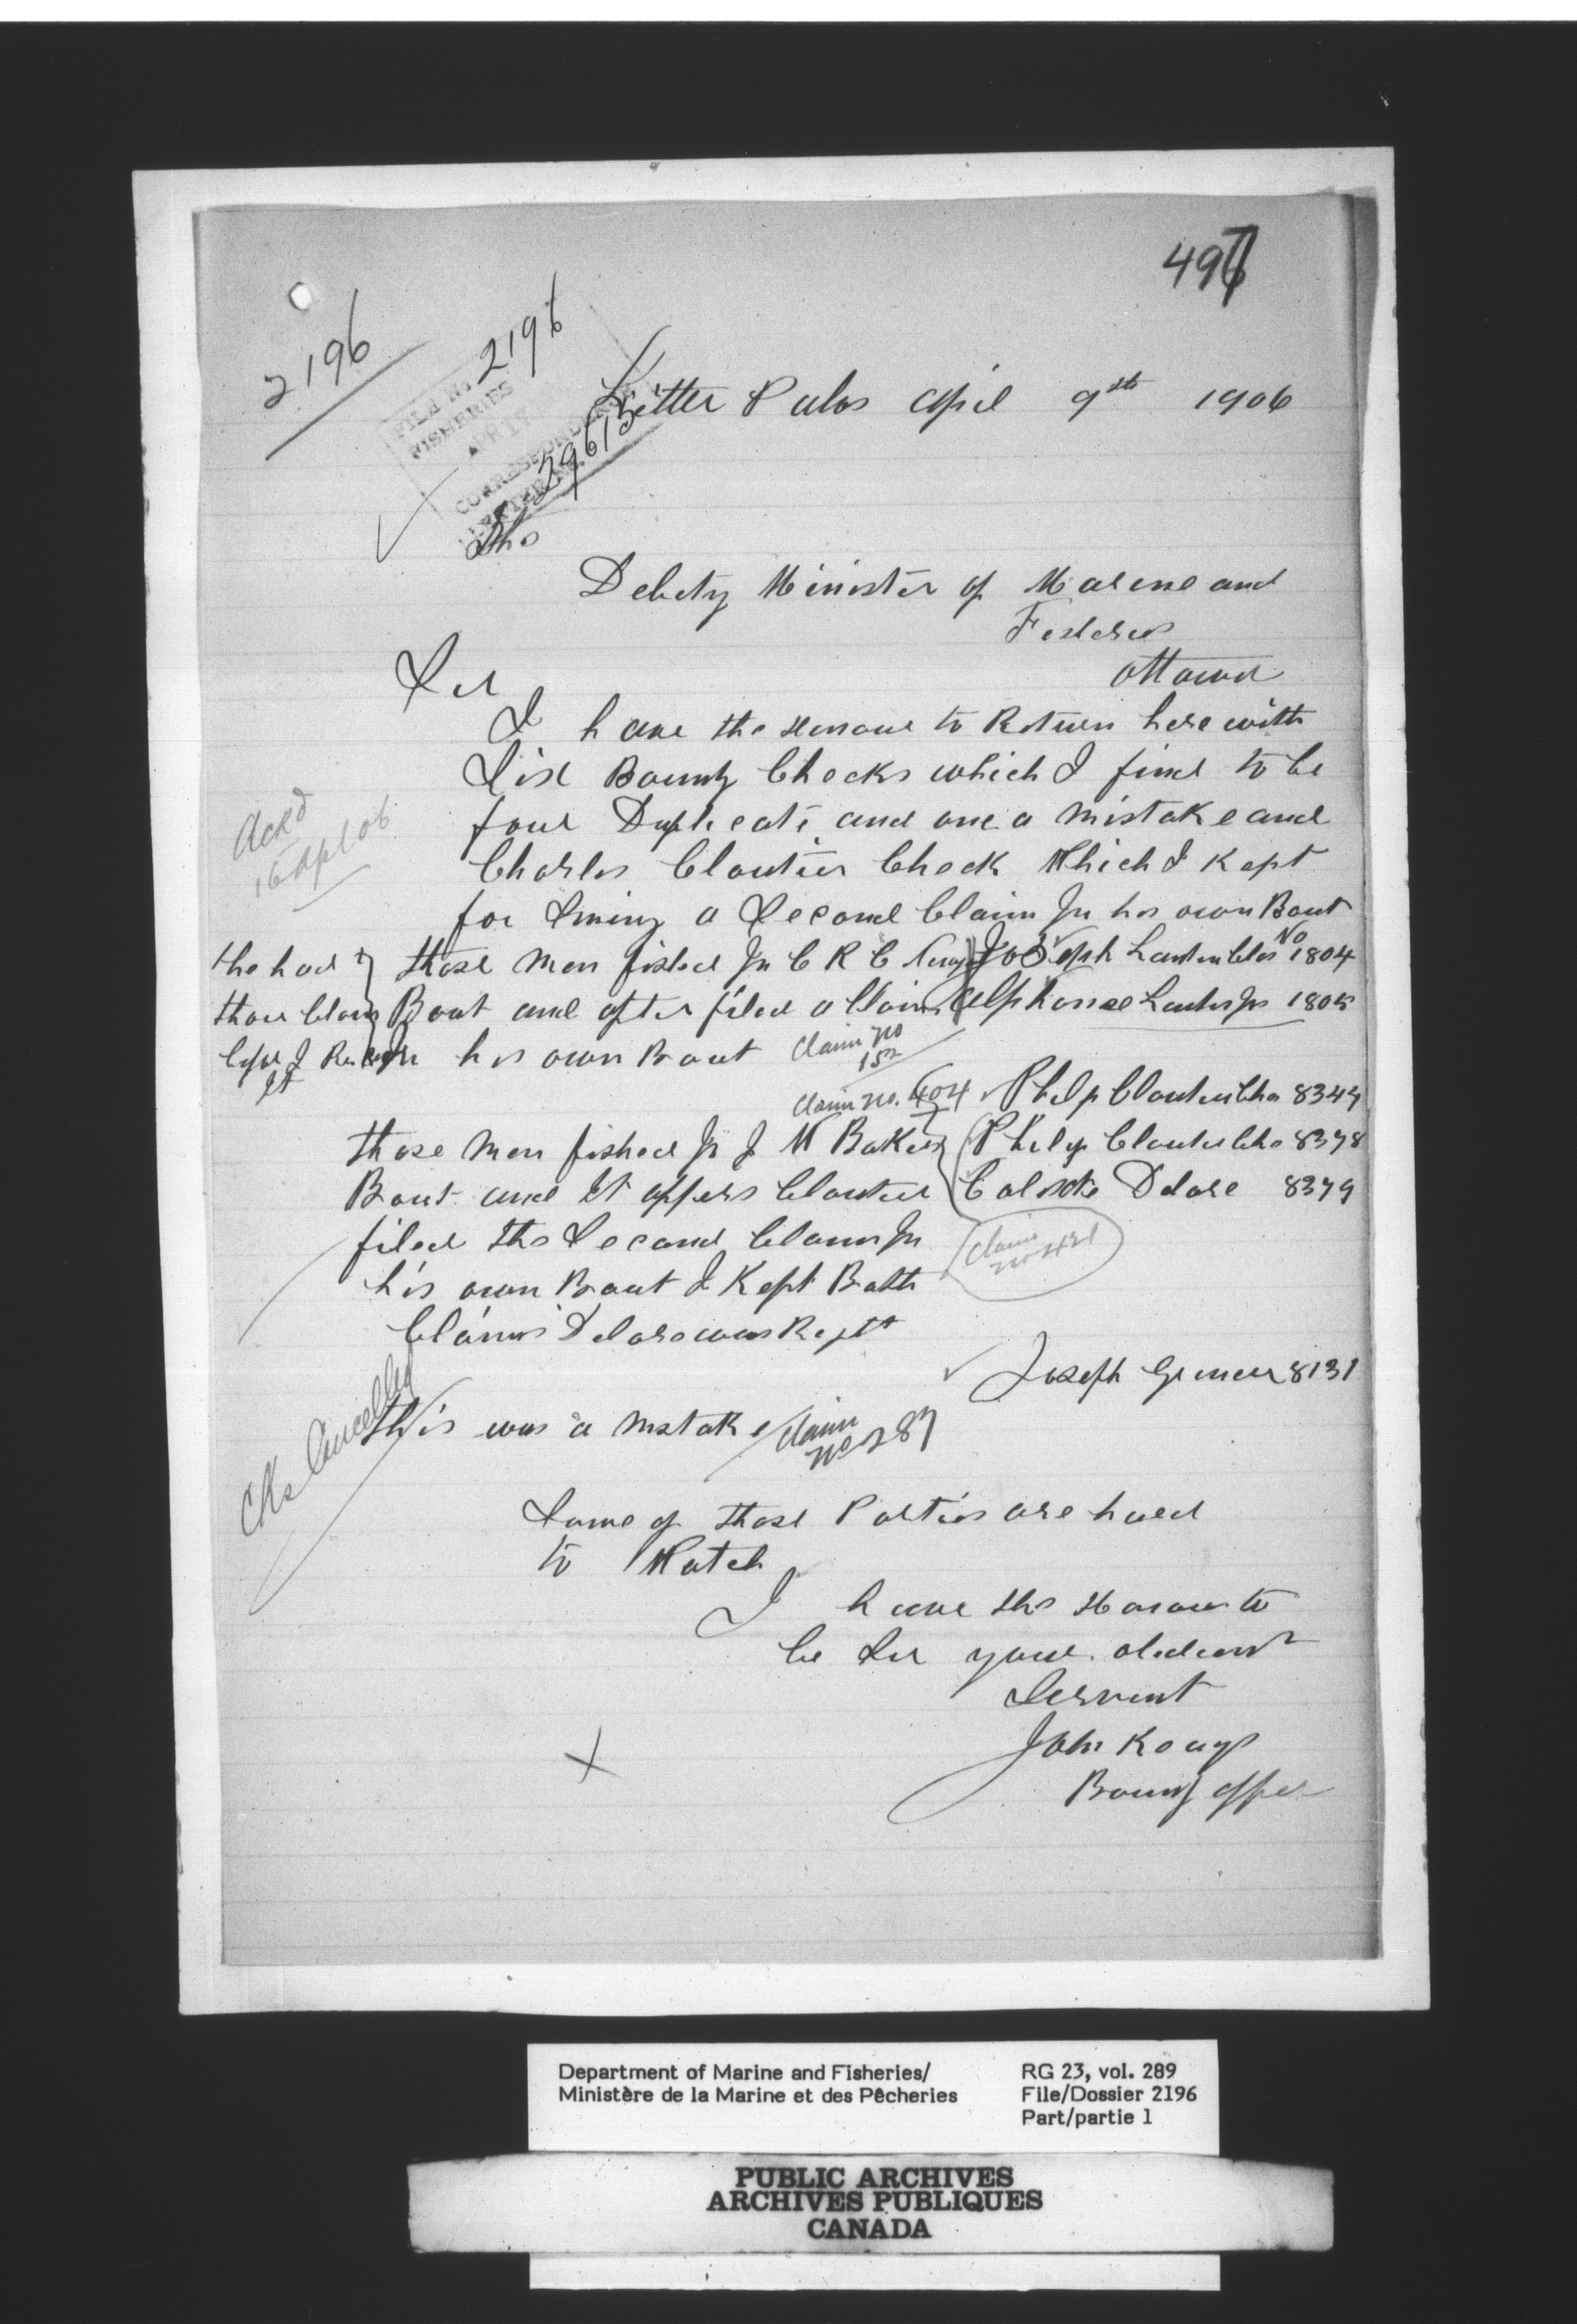 497
2196
FILE No. 2196
FISHERIES
APR 17
CORRESPONDENCE
LETTER No. 29615
Little Pabos April 9th 1906
The
Debety Minister of Marine and
Fisheres
Ottawa
Sir
I have the Honour to Return here with
Six Bounty Checks which I find to be
four Duplicate and one a Mistake and
Charles Cloutier Check Which I kept
for Sining a Second Claim In his own Boat
Ackd
16 Apl 06
those Men fished In C R C
Joseph
No 1804
Boat and after filed a Claim
Alphonse
1805
In his own Boat
Claim no
152
the had
thou Claim
It
Claim no. 404
Philip Cloutier Cha 8344
those Men fished In J W Bakers
Philip Cloutier Cha 8378
Boat and It appers Cloutier
Calixte Delare 8379
filed the Second Claim In
Claim
no 421
his own Boat I Kept Bath
Claims Delare was Kept
Joseph 8131
this was a mistake
Claim
no 287
Cks Cancelled
Some of those Parties are hard
to Watch
I have the Honour to
be Sir your obedient
Servant
John Kougs
Bounty offer
X
Department of Marine and Fisheries/
Ministère de la Marine et des Pêcheries
RG 23, vol. 289
File/Dossier 2196
Part/partie 1
PUBLIC ARCHIVES
ARCHIVES PUBLIQUES
CANADA